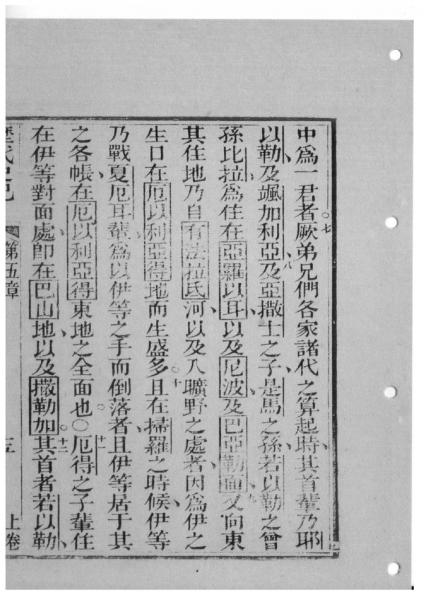 中爲一君者厥弟兄們各家諸代之算起時其首輩乃耶
以勒及颯加利亞及亞撒士之子是馬之孫若以勒之曾
孫比拉爲住在亞羅以耳以及尼波及巴亞勒面又向東
其住地乃自有法拉氐河以及入曠野之處者因爲伊之
生口在厄以利亞得地而生盛多且在掃羅之時候伊等
乃戰夏厄耳輩爲以伊等之手而倒落者且伊等居于其
之各帳在厄以利亞得東地之全面也○厄得之子輩住
在伊等對面處卽在巴山地以及撒勒加其首者若以勒
歷代史記 第五章 五 上卷
七
八
九
十
十一
十二